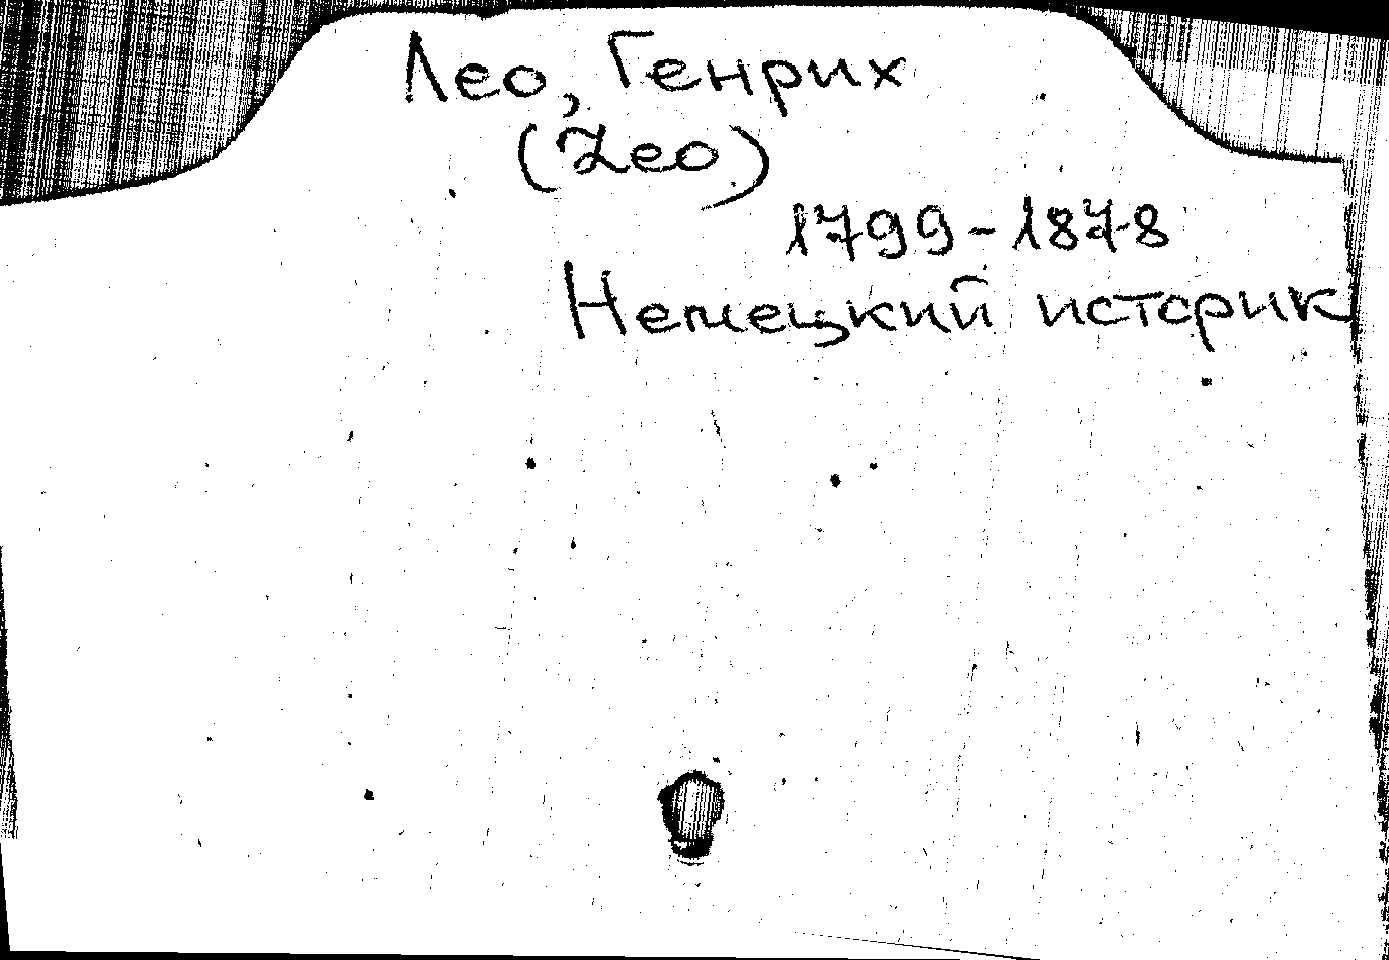 Лео, Генрих
(Leo)
1799-1878
Немецкий историк